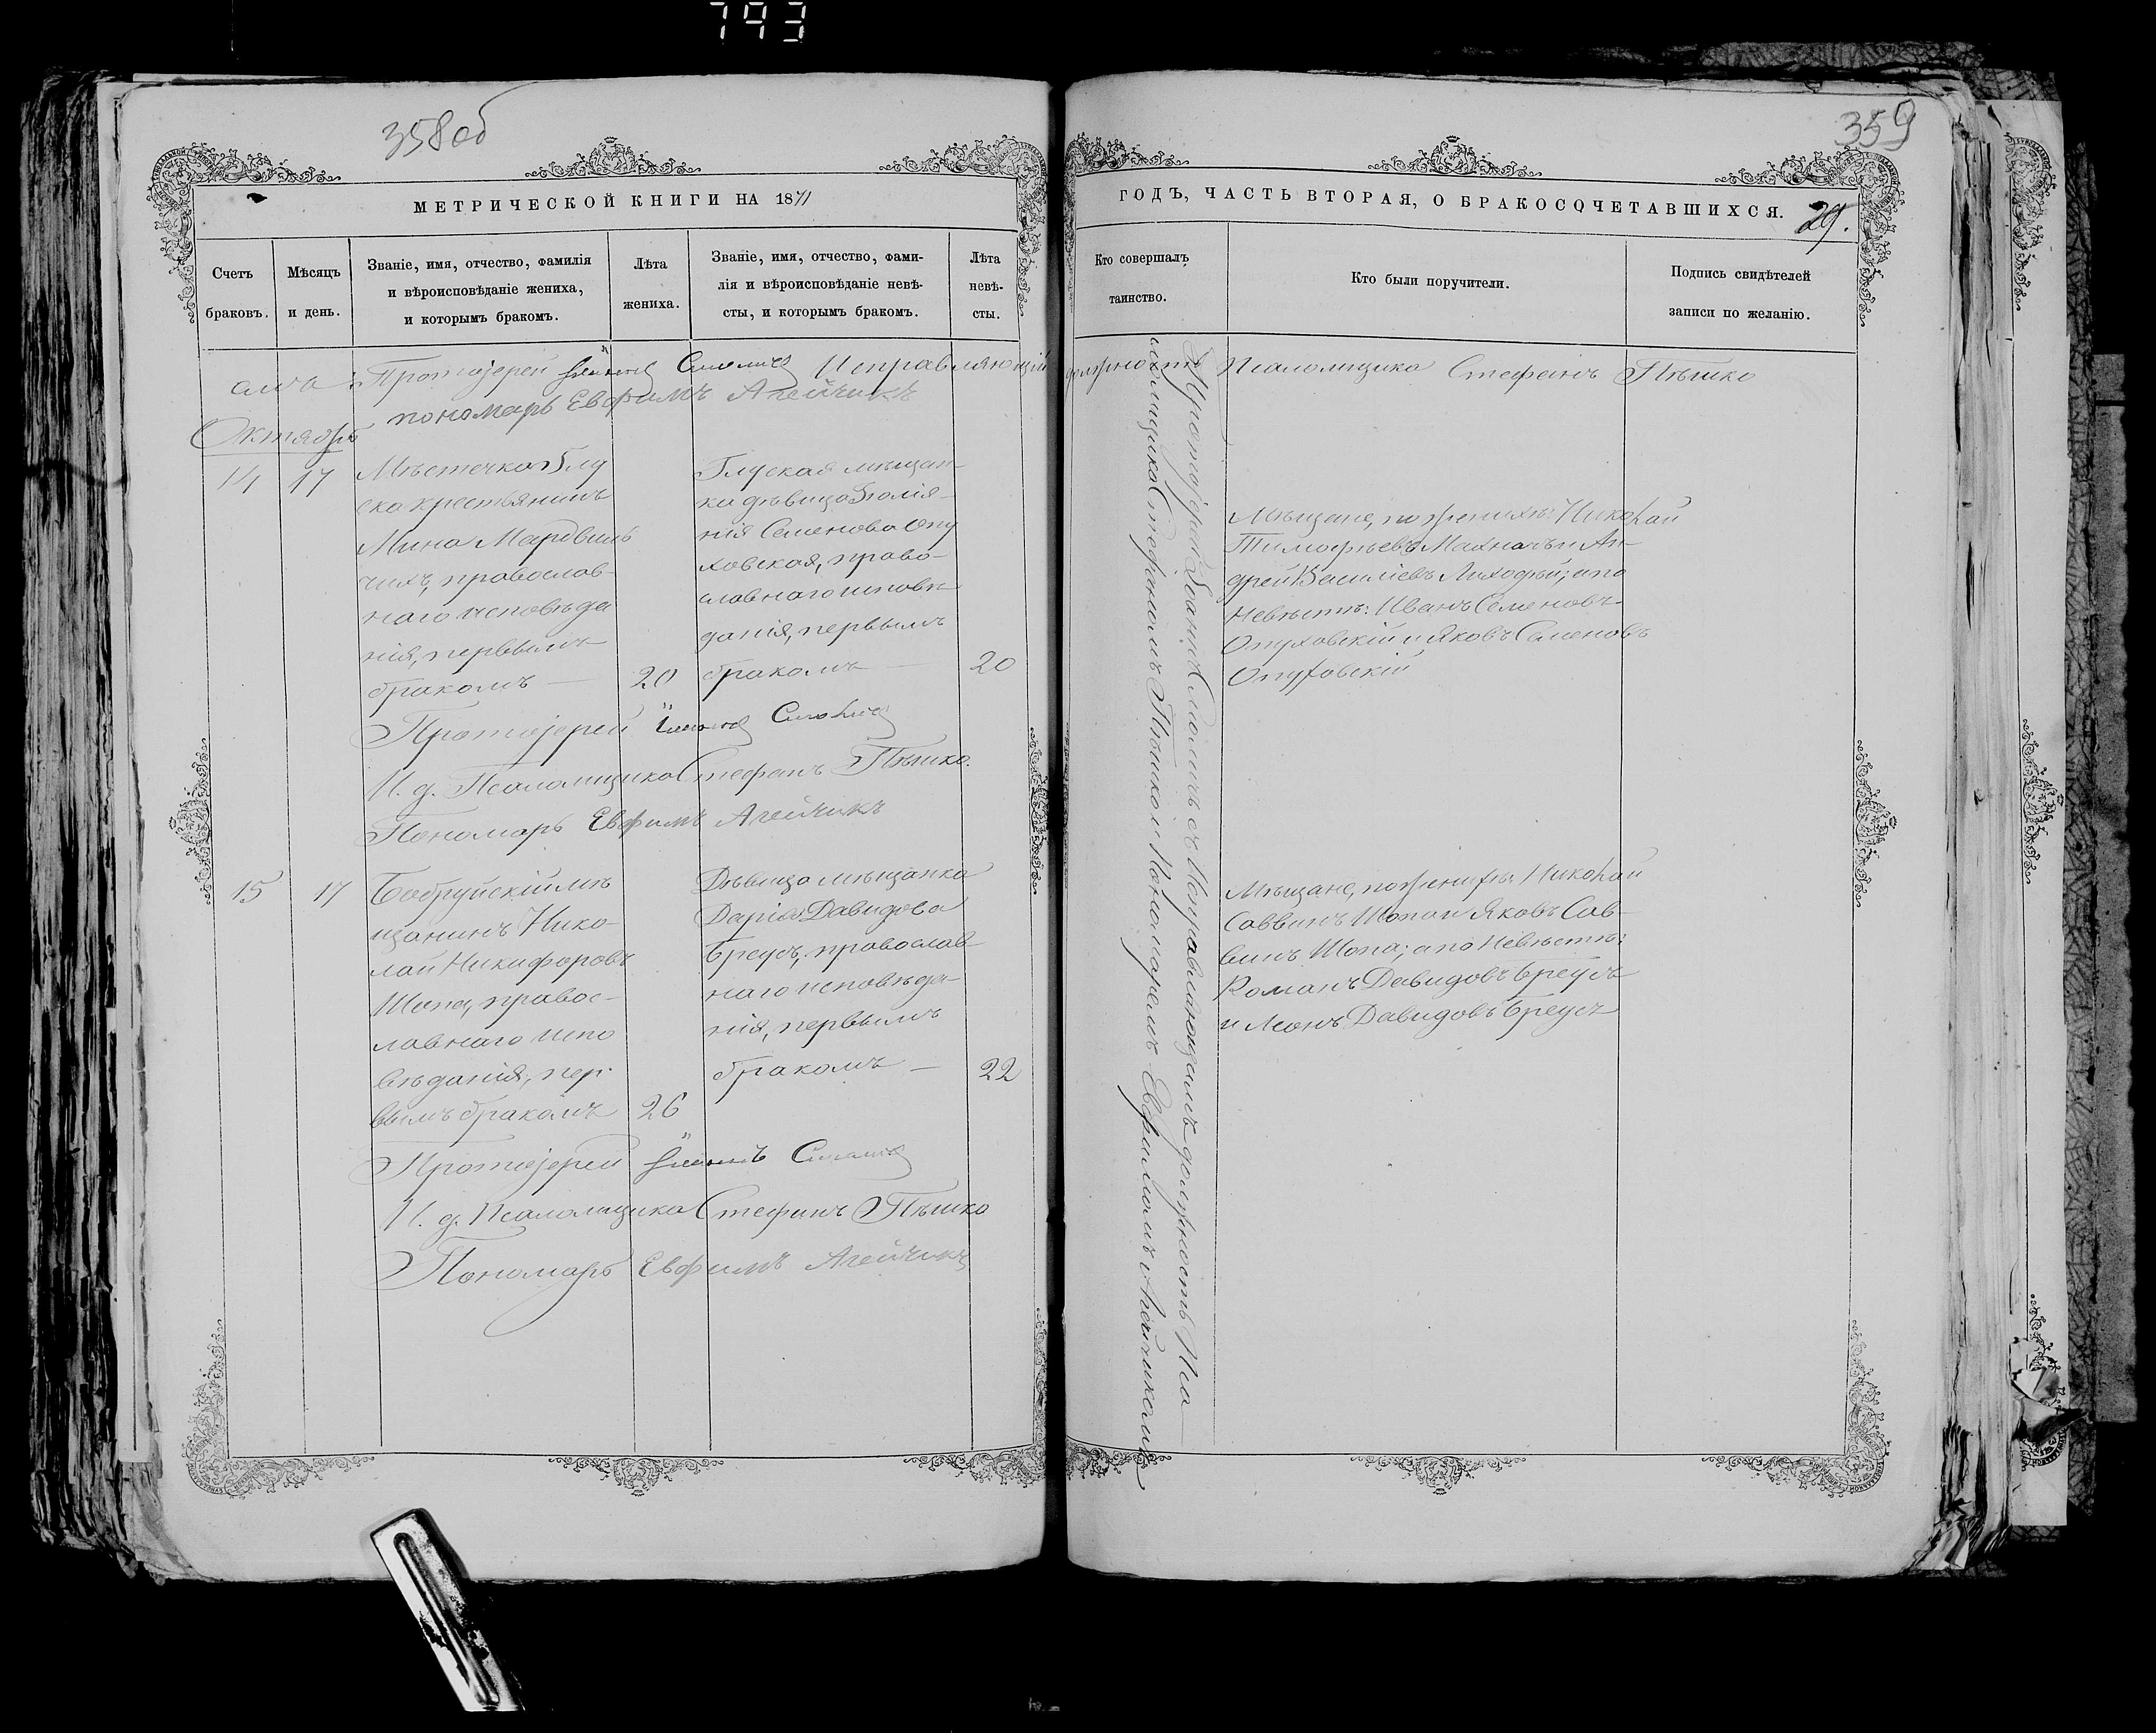 793
358об
МЕТРИЧЕСКОЙ КНИГИ НА 1871
Счетъ браковъ.
Мѣсяцъ и день.
Званіе, имя, отчество, фамилія
и вѣроисповѣданіе жениха,
и которымъ бракомъ.
Лѣта
жениха.
Званіе, имя, отчество, фами-
лія и вѣроисповѣданіе невѣ-
сты, и которымъ бракомъ.
Лѣта
невѣ-
сты.
Протоіерей Исправляющій
пономарь Евфимъ Агейчикъ
Октябрь
14 17
Мѣстечка Глу
ска крестьянинъ
Мина
православ-
наго исповѣда
нія, первымъ
бракомъ —
20
Глуская мѣщан-
ка дѣвица
нія Семенова Опу
ховская, право-
славнаго исповѣ
данія, первымъ
бракомъ —
20
Протоіерей
И. д. Псаломщика Стефанъ Пѣшко.
Пономарь Евфимъ Агейчикъ
15 17
Бобруйскій мѣ
щанинъ Нико-
лай Никифоровъ
Шопа, правос-
лавнаго испо
вѣданія, пер-
вымъ бракомъ
26
Дѣвица мѣщанка
Дарія Давидова
Бреусъ, православ-
наго исповѣда-
нія, первымъ
бракомъ —
22
Протоіерей
И. д. Псаломщика Стефанъ Пѣшко
Пономарь Евфимъ Агейчикъ
359
ГОДЪ, ЧАСТЬ ВТОРАЯ, О БРАКОСОЧЕТАВШИХСЯ.
29.
Кто совершалъ
таинство.
Кто были поручители.
Подпись свидѣтелей
записи по желанію.
должность Псаломщика Стефанъ Пѣшко
Протоіерей Іоаннъ Смоличъ съ Исправляющимъ должность Пса
ломщика Стефаномъ Пѣшкой и Пономаремъ Евфимомъ Агейчикомъ
Мѣщане, по женихѣ: Николай
Тимофѣевъ Махначъ и Ан-
дрей Василіевъ Лиходѣй; а по
невѣстѣ: Иванъ Семеновъ
Опуховскій и Яковъ Семеновъ
Опуховскій
Мѣщане, по женихѣ: Николай
Саввинъ Шопа и Яковъ Сав-
винъ Шопа; а по невѣстѣ:
Романъ Давидовъ Бреусъ
и Леонъ Давидовъ Бреусъ